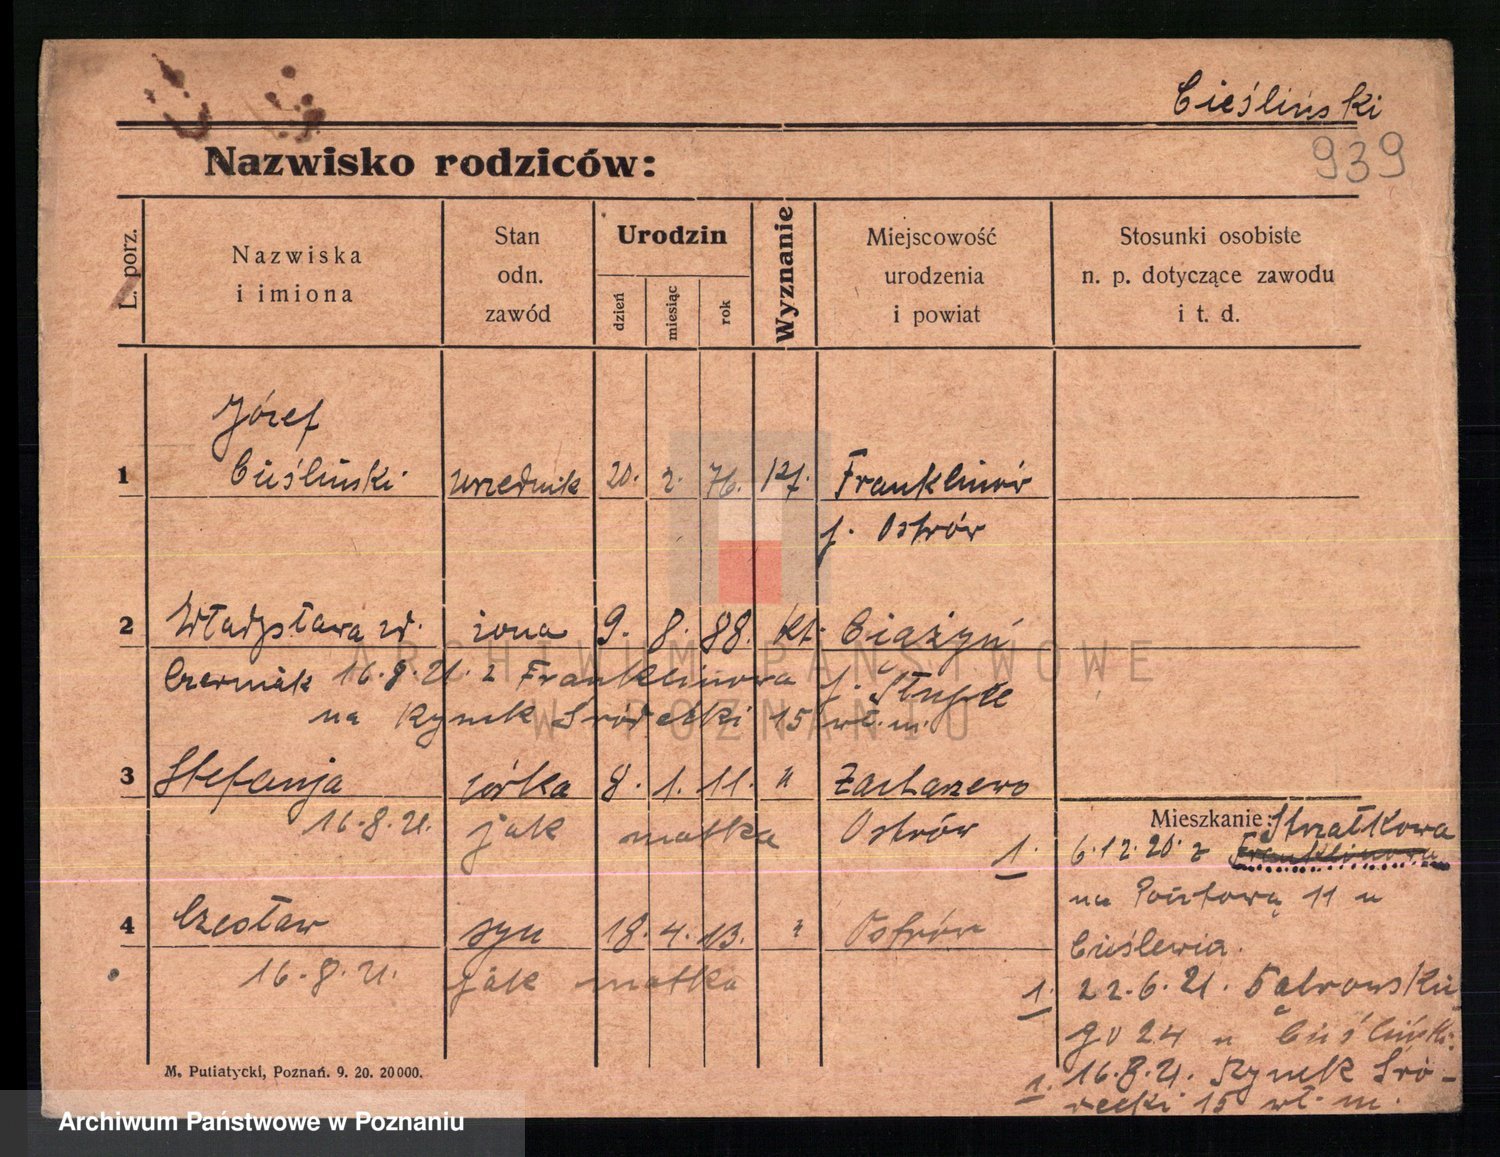 Cieśliński
939
Nazwisko rodziców:
L. porz.
Nazwiska
i imiona
Stan
odn.
zawód
Urodzin
dzień
miesiąc
rok
Wyznanie
Miejscowość
urodzenia
i powiat
Stosunki osobiste
n. p. dotyczące zawodu
i t. d.
Józef
1 Cieśliński urzednik 20. 2. 76. Franklinów
p. Ostrów
2 Władysława żona 9. 8. 88. kt. Ciążyń
Czermak 16.8.21. z Franklinowa p. Słupce
na Rynek Śródecki 15 wł. m.
3 Stefanja córka 8. 1. 11. " Zacharzewo
16.8.21. jak matka Ostrów
4 Czesław syn 18. 4. 13. " Ostrów
16.8.21. jak matka
Mieszkanie: Strzałkowa
1. 6.12.20. z Franklinowa
na Pocztową 11 u
Cieślewia.
1. 22.6.21. Dąbrowskie
go 24 u Cieśliński.
1. 16.8.21. Rynek Śró-
decki 15 wł. m.
M. Putiatycki, Poznań. 9. 20. 20000.
ARCHIWUM PAŃSTWOWE
W POZNANIU
Archiwum Państwowe w Poznaniu